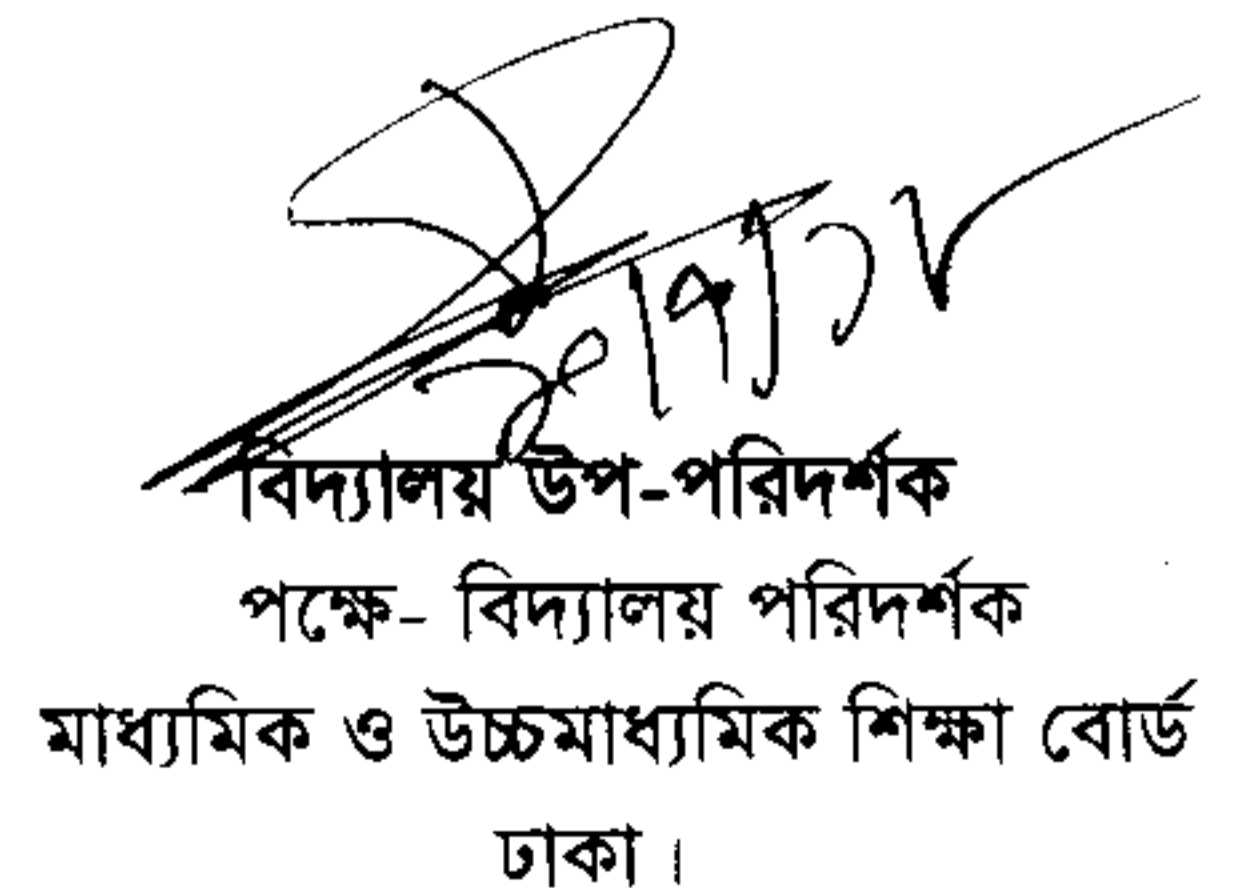 বিদ্যালয় উপ-পরিদর্শক
পক্ষে- বিদ্যালয় পরিদর্শক
মাধ্যমিক ও উচ্চমাধ্যমিক শিক্ষা বোর্ড
ঢাকা ।